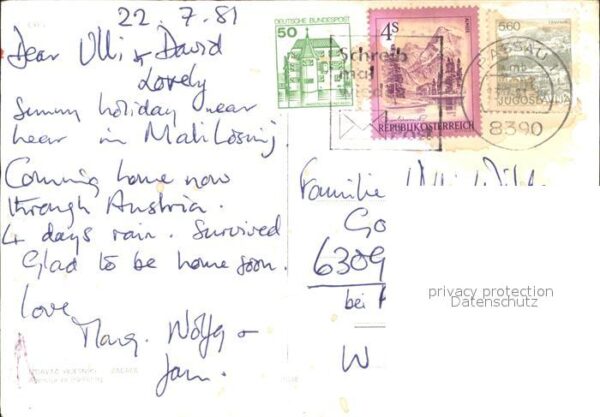 22.7.81
Dear Ulli + David
Lovely
Sunny holiday near
hear in Mali Lošinj
Coming home now
through Austria.
4 days rain. Survived
Glad to be home soon.
love
Marg. Wolfg +
Jam.
DEUTSCHE BUNDESPOST
50
4S
REPUBLIK ÖSTERREICH
560
JUGOSLAVIJA
Schreib
mal
PASSAU
8390
Familie Ulli
Go
6309
bei
W
privacy protection
Datenschutz